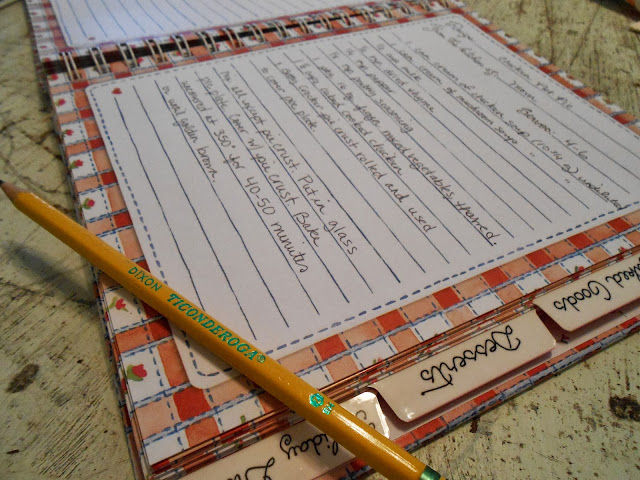 Recipe: Chicken Pot Pie
From the kitchen of:
Serves: 4-6
1 can cream of chicken soup (10¾ oz)
1 can cream of mushroom soup "
½ tsp dried thyme
½ tsp pepper
½ tsp poultry seasoning
1 pkg 16 oz frozen mixed vegetables, thawed
cooked chicken
pie crust rolled and used
to cover pie plate.
Mix all except pie crust. Put in glass
pie plate. Cover w/ pie crust. Bake
uncovered at 350° for 40-50 minutes
or until golden brown.
DIXON TICONDEROGA®
Goods
Desserts
Holiday